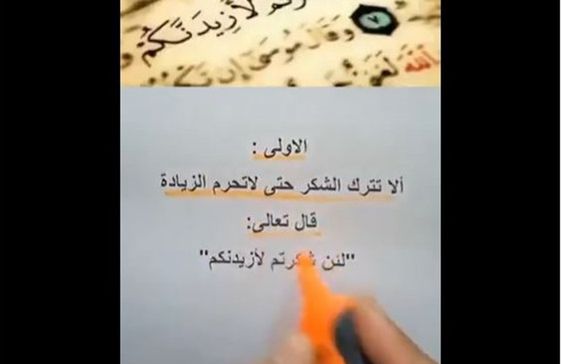 لأزيدنكم
٧ وقال موسى إن تك
الله لغني
الاولى :
ألا تترك الشكر حتى لاتحرم الزيادة
قال تعالى:
"لئن شكرتم لأزيدنكم"